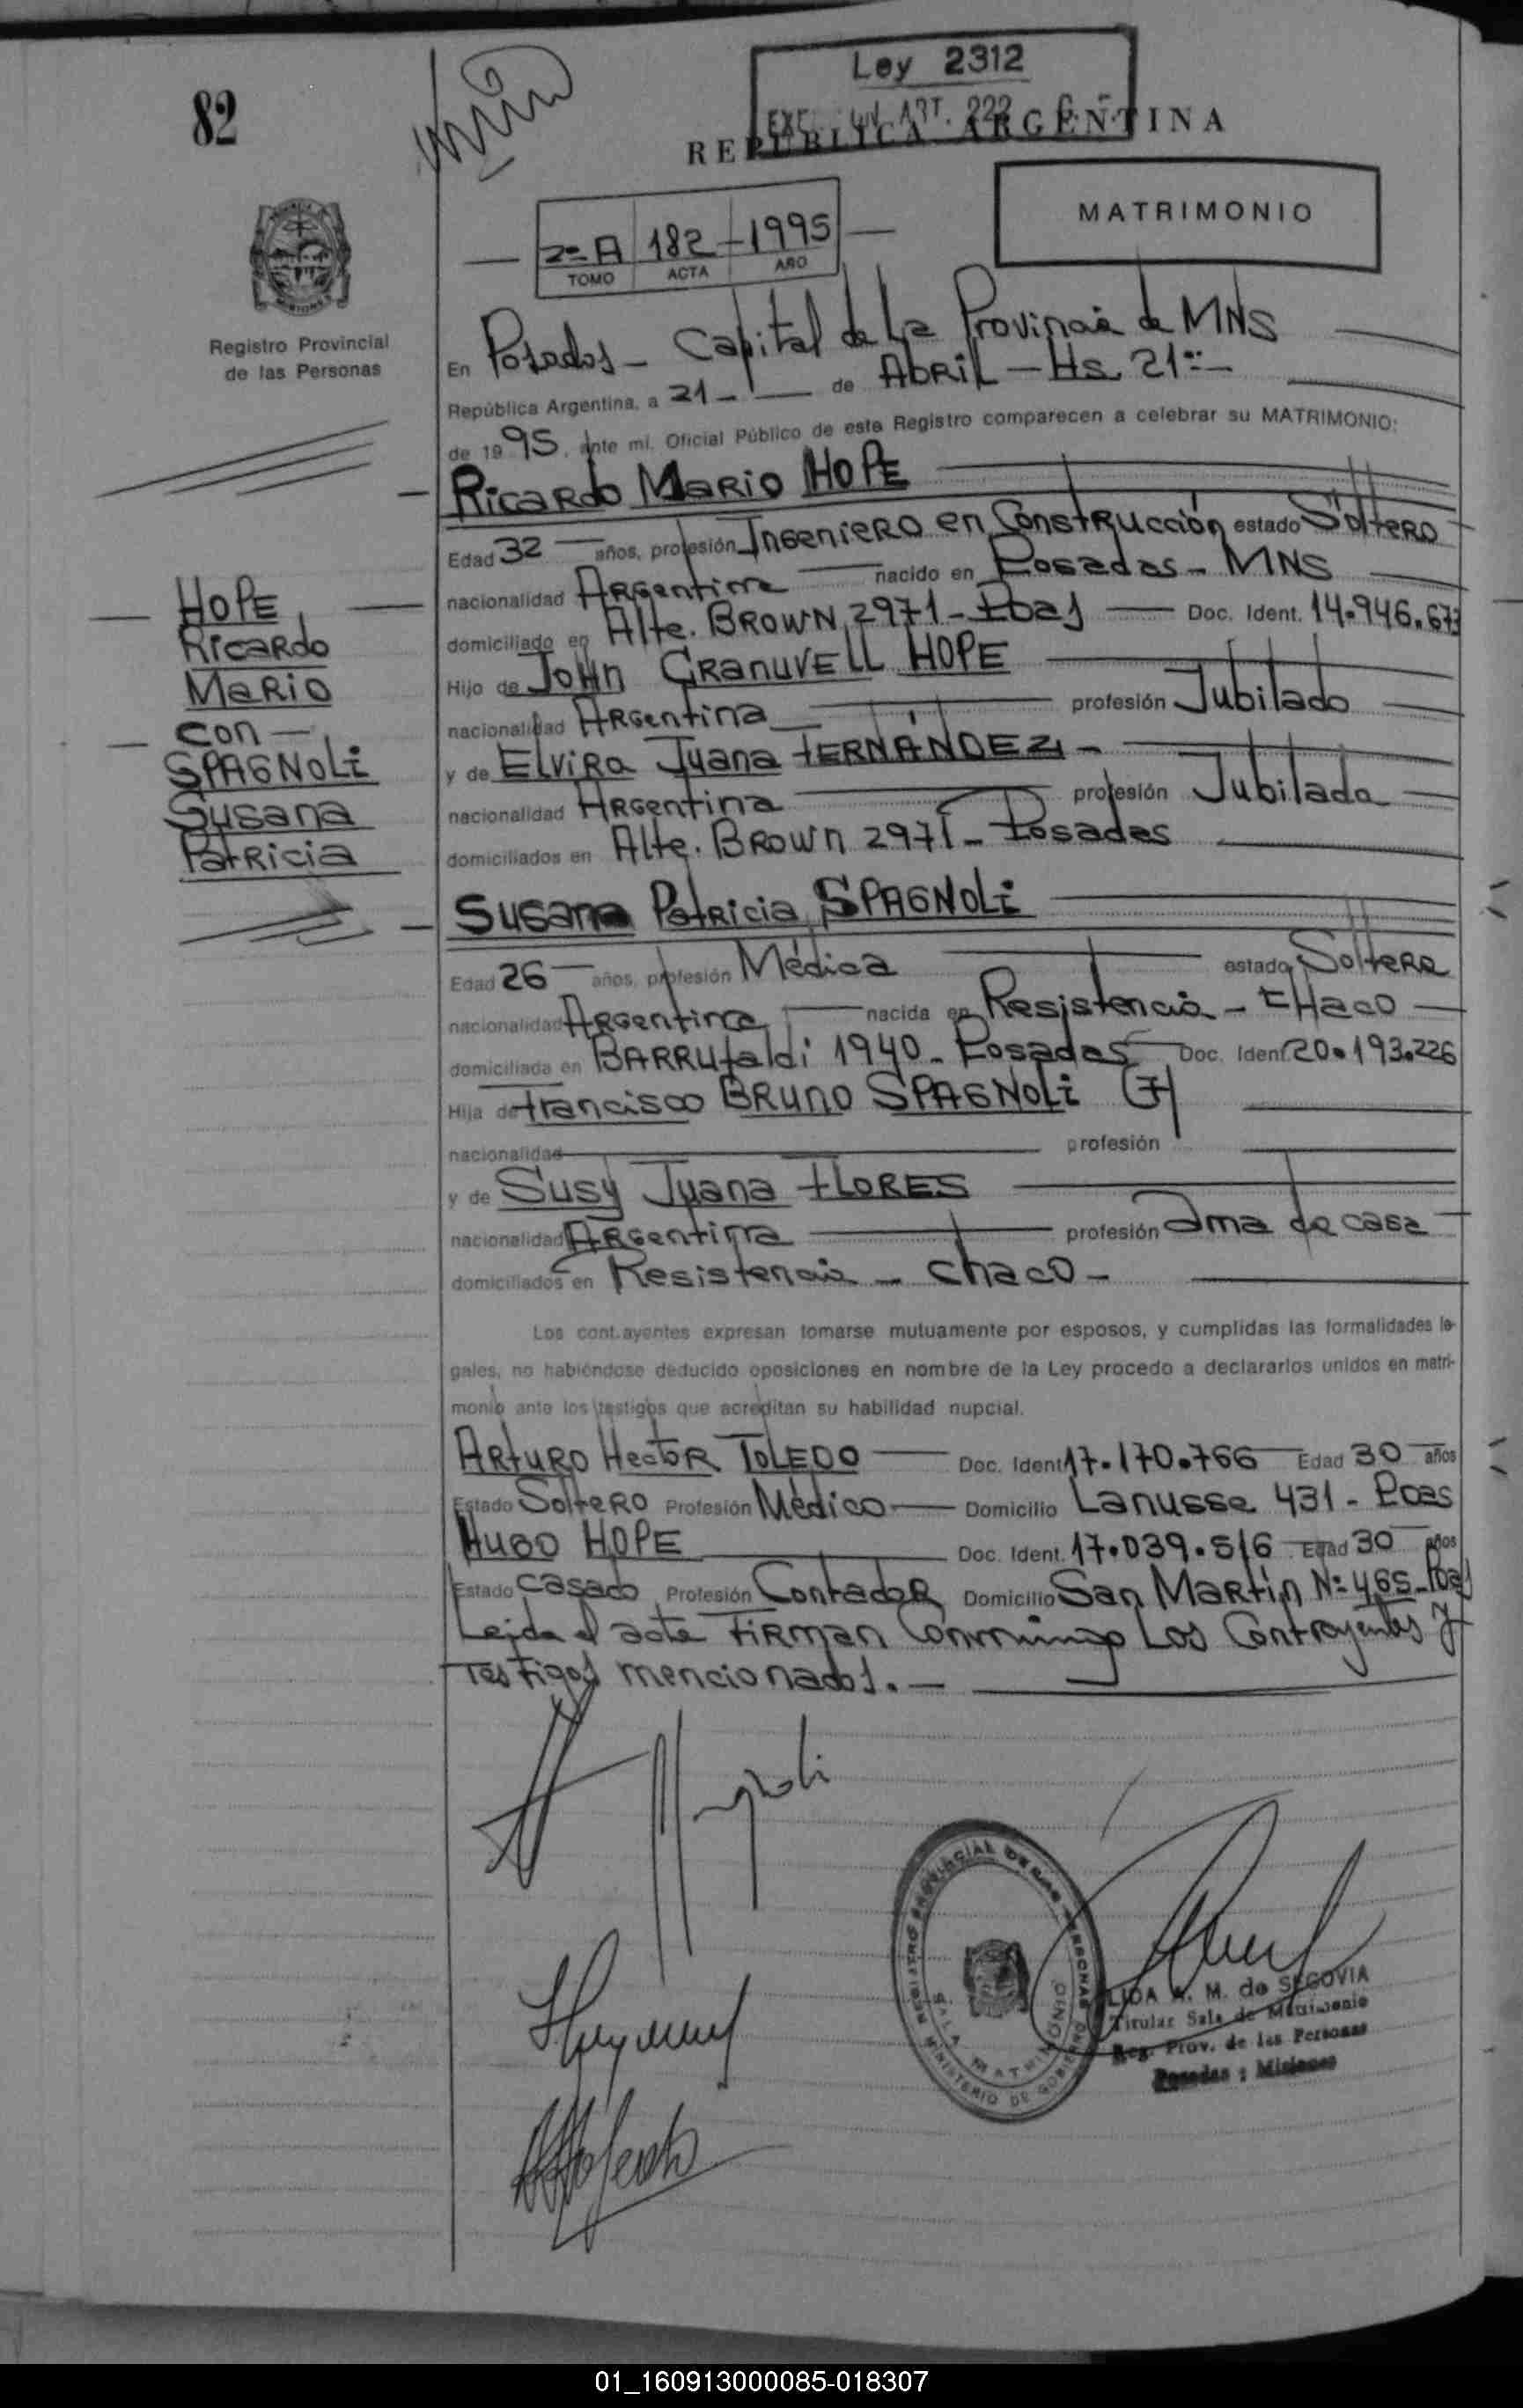 82
Ley 2312
ART. 222
REPUBLICA ARGENTINA
MATRIMONIO
2º A 182 - 1995
TOMO ACTA AÑO
Registro Provincial
de las Personas
En Posadas - Capital de La Provincia de MNS
República Argentina, a 21 - de ABRIL - Hs. 21:-
de 1995, ante mi, Oficial Público de este Registro comparecen a celebrar su MATRIMONIO:
Ricardo Mario HOPE
Edad 32 años, profesión Ingeniero en Construcción estado Soltero
nacionalidad Argentina nacido en Posadas - MNS
domiciliado en Alte. BROWN 2971 - Pdas Doc. Ident. 14.946.673
Hijo de John GRANUVELL HOPE
nacionalidad Argentina profesión Jubilado
y de Elvira Juana FERNÁNDEZ -
nacionalidad Argentina profesión Jubilada
domiciliados en Alte. Brown 2971 - Posadas
HOPE
Ricardo
Mario
con -
SPAGNOLi
Susana
Patricia
Susana Patricia SPAGNOLi
Edad 26 años, profesión Médica estado Soltera
nacionalidad Argentina nacida en Resistencia - CHaco
domiciliada en BARRUfaldi 1940 - Posadas Doc. Ident. 20.193.226
Hija de Francisco BRUNO SPAGNOLi (F)
nacionalidad profesión
y de Susy Juana FLORES
nacionalidad Argentina profesión ama de casa
domiciliados en Resistencia - Chaco -
Los contrayentes expresan tomarse mutuamente por esposos, y cumplidas las formalidades le-
gales, no habiéndose deducido oposiciones en nombre de la Ley procedo a declararlos unidos en matri-
monio ante los testigos que acreditan su habilidad nupcial.
Arturo Hector TOLEDO Doc. Ident. 17.170.766 Edad 30 años
Estado Soltero Profesión Médico Domicilio Lanusse 431 - Pdas
Hugo HOPE Doc. Ident. 17.039.516 Edad 30 años
Estado casado Profesión Contador Domicilio San Martín Nº 465 - Pdas
Leida el acta FIRMAN Conmigo Los Contrayentes y
Testigos mencionados. -
REGISTRO PROVINCIAL DE LAS PERSONAS
SALA MATRIMONIO
MINISTERIO DE GOBIERNO
LIDA A. M. de SEGOVIA
Titular Sala de Matrimonio
Reg. Prov. de las Personas
Posadas : Misiones
01_160913000085-018307